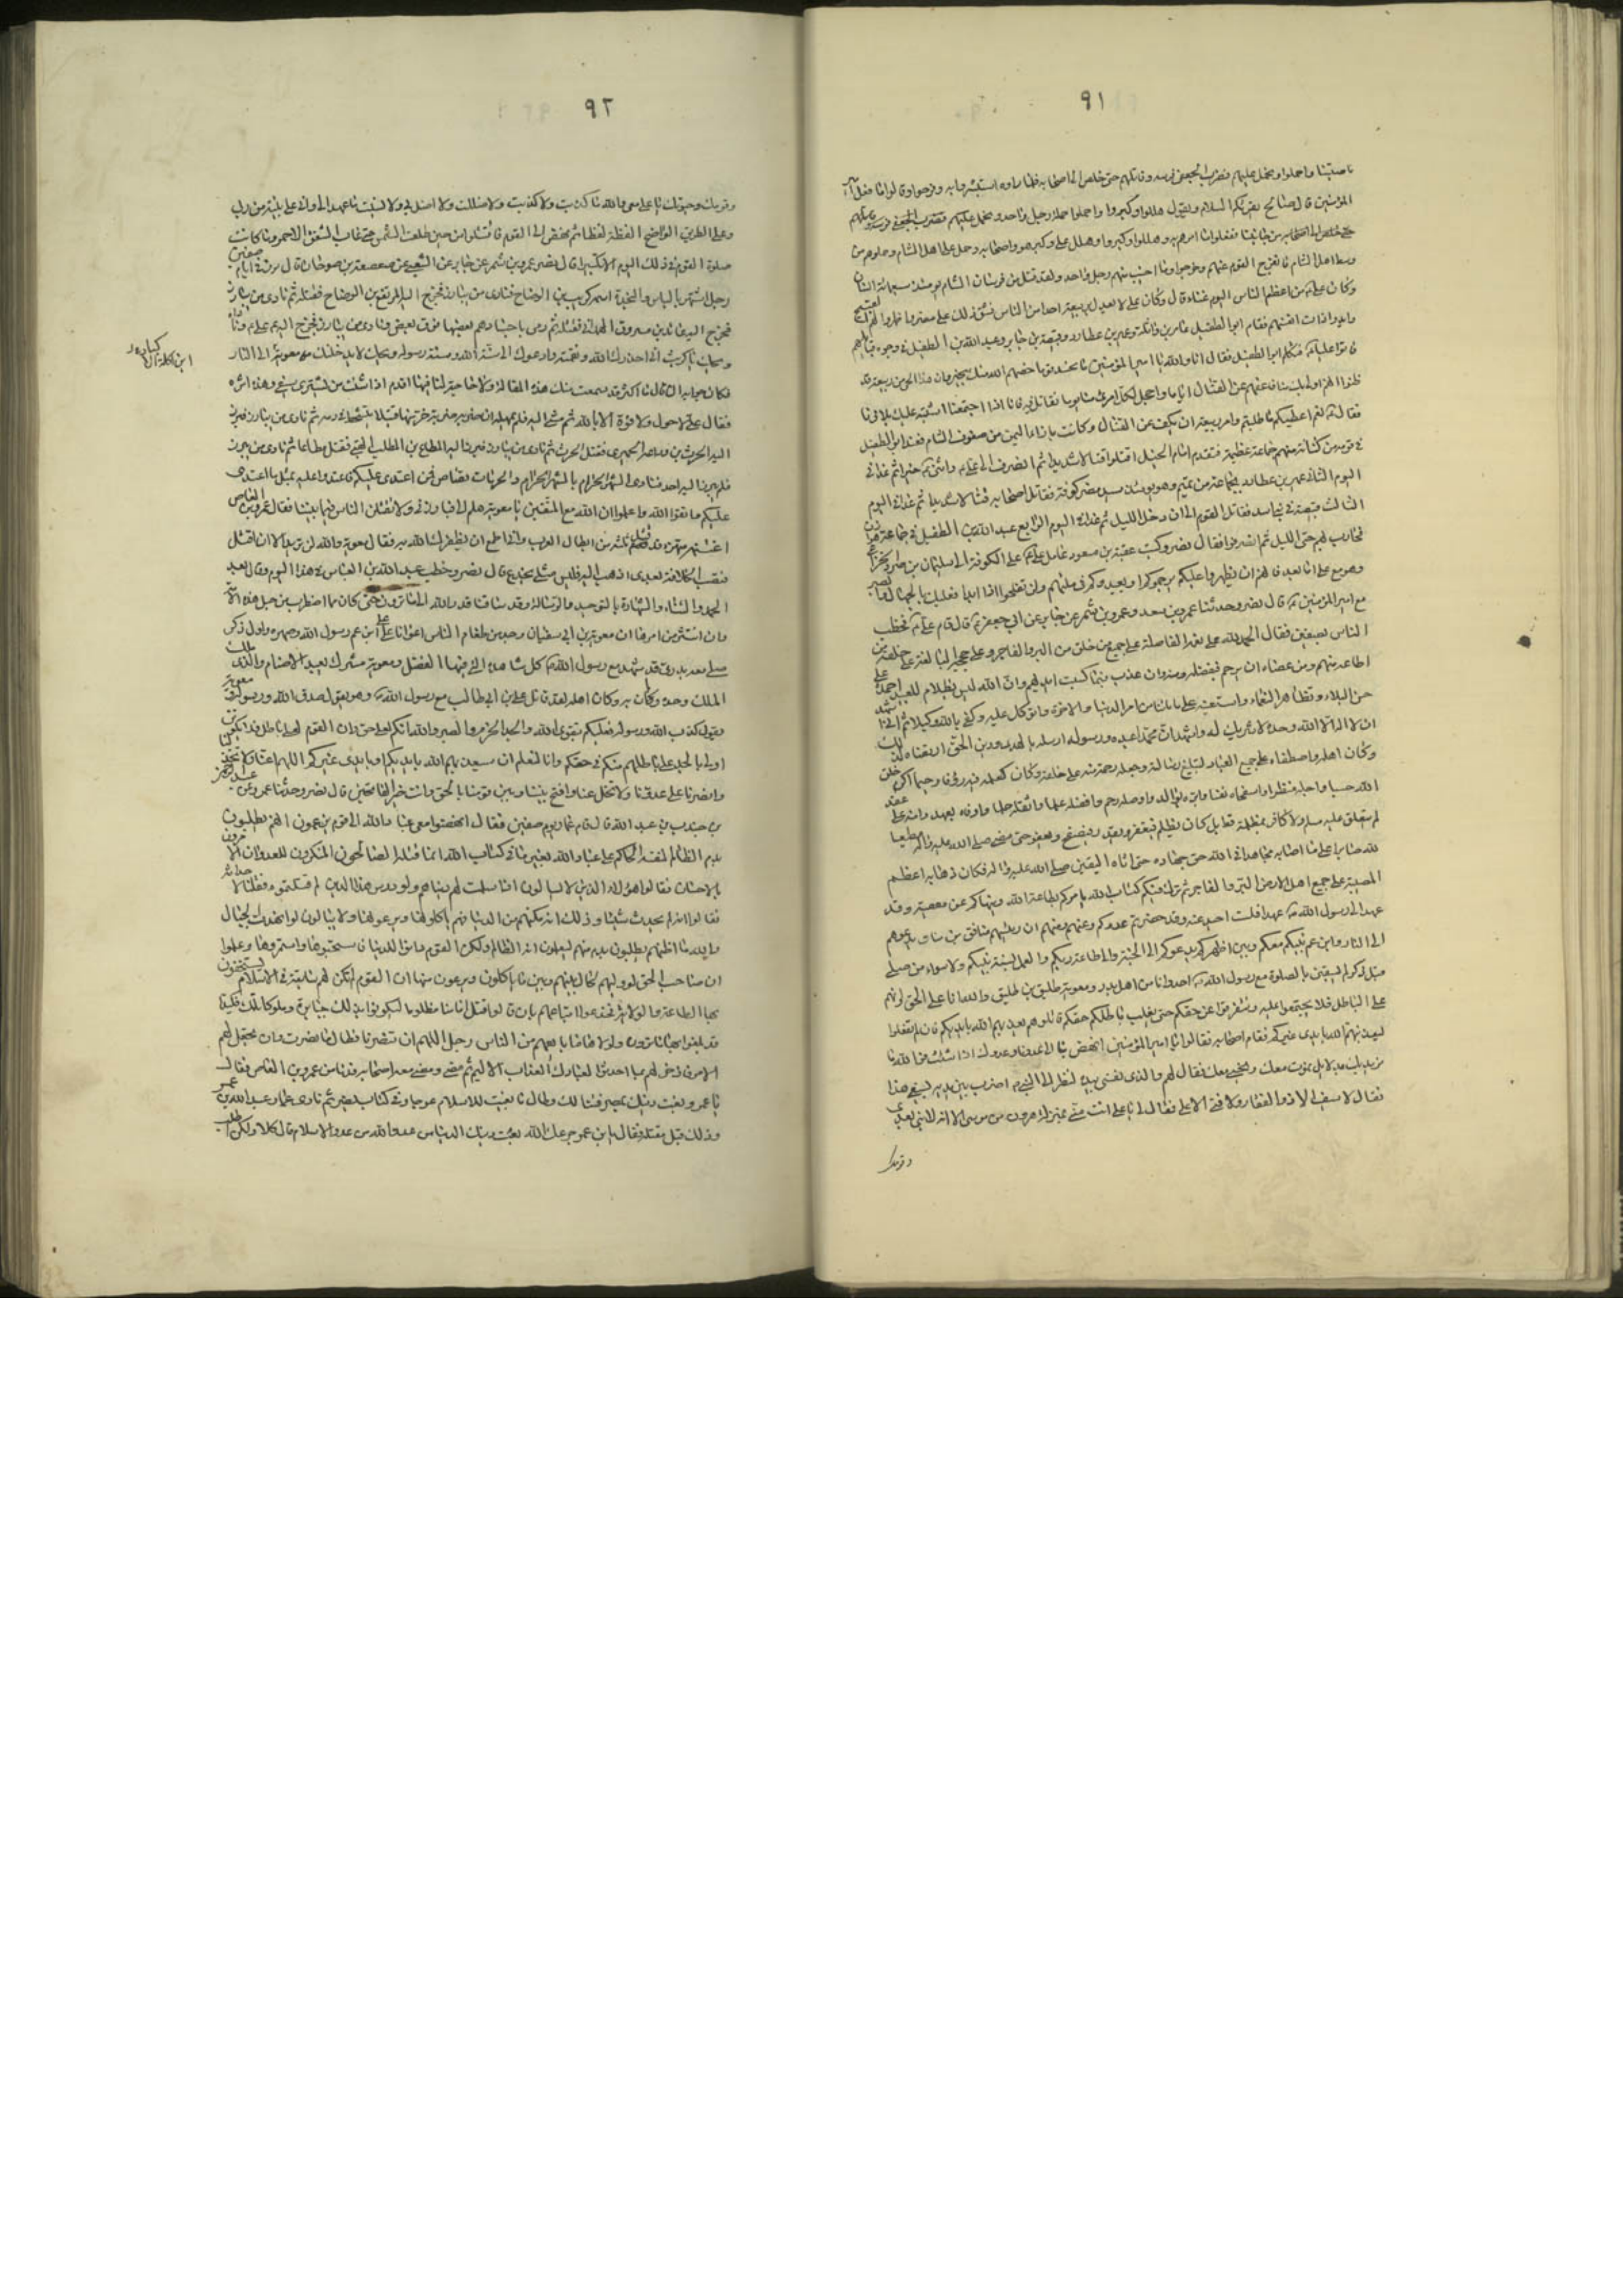 ٩١
ناصيتنا واحملوا ونحمل عليهم فضرب الجعفي فرسه وقاتلهم حتى خلص الى اصحابه فلما راوه استبشروا به وفرحوا وقالوا ما فعل امير
المؤمنين قال صالح يقرئكم السلام ويقول هللوا وكبروا واحملوا حملة رجل واحد ونحمل عليهم فضرب الجعفي فرسه وقاتلهم
حتى خلص الى اصحابه من جانبنا ففعلوا ما امرهم به وهللوا وكبروا وهلل علي وكبر هو واصحابه وحمل على اهل الشام وحملوهم من
وسط اهل الشام فانفرج القوم عنهم وخرجوا وما اصيب منهم رجل واحد ولقد قتل من فرسان الشام يومئذ سبعمائة انسان
وكان علي من اعظم الناس اليوم غناء قال وكان علي لا يعدل بربيعة احدا من الناس فشق ذلك على مضر واظهروا لهم القبيح
وابدوا ذات انفسهم فقام ابو الطفيل عامر بن واثلة وعمير بن عطارد وقبيصة بن جابر وعبد الله بن الطفيل في وجوه قبائلهم
فاتوا عليا فتكلم ابو الطفيل فقال انا والله يا امير المؤمنين ما نحسد قوما خصهم الله منك بخير وان هذا الحي من ربيعة قد
ظنوا انهم اولى بك منا فاعفهم عن القتال اياما واجعل لكل امرئ منا يوما نقاتل فيه فانا اذا اجتمعنا اشتبه عليك بلاؤنا
فقال نعم اعطيكم ما طلبتم وامر ربيعة ان تكف عن القتال وكانت بازاء اليمن من صفوف الشام فغدا ابو الطفيل
في قومه من كنانة وهم جماعة عظيمة فتقدم امام الخيل اقتتلوا قتالا شديدا ثم انصرف الى علي واثنى عليه خيرا ثم غدا في
اليوم الثاني عمير بن عطارد بجماعة من بني تميم وهو يومئذ سيد مضر كوفة فقاتل اصحابه قتالا شديدا ثم غدا في اليوم
الثالث قبيصة في بني اسد فقاتل القوم الى ان دخل الليل ثم غدا في اليوم الرابع عبد الله بن الطفيل في جماعة هوازن
فحارب بهم حتى الليل ثم انصرفوا فقال نصر وكتب عقبة بن مسعود عامل علي على الكوفة الى سليمان بن صرد الخزاعي
وهو مع علي اما بعد فانهم ان يظهروا عليكم يرجموكم او يعيدوكم في ملتهم ولن تفلحوا اذا ابدا فعليك بالجهاد والصبر
مع امير المؤمنين قال نصر وحدثنا عمر بن سعد وعمرو بن شمر عن جابر عن ابي جعفر قال قام علي فخطب
الناس بصفين فقال الحمد لله على نعمه الفاضلة على جميع من خلق من البر والفاجر وعلى حججه البالغة على خلقه من
اطاعه منهم ومن عصاه ان يرحم فبفضله ومنه وان عذب فبما كسبت ايديهم وان الله ليس بظلام للعبيد احمده على
حسن البلاء وتظاهر النعماء واستعينه على ما نابنا من امر الدنيا والاخرة واتوكل عليه وكفى بالله وكيلا ثم اني اشهد
ان لا اله الا الله وحده لا شريك له واشهد ان محمدا عبده ورسوله ارسله بالهدى ودين الحق ارتضاه لذلك
وكان اهله واصطفاه على جميع العباد لتبليغ رسالته وجعله رحمة منه على خلقه وكان كعلمه فيه رؤفا رحيما اكرم خلق
الله حسبا واجمله منظرا واسخاه نفسا وابره بوالد واوصله لرحم وافضله علما واثقله حلما واوفاه بعهد وامنه على عقد
لم يتعلق عليه مسلم ولا كافر بمظلمة قط بل كان يظلم فيغفر ويقدر فيصفح ويعفو حتى مضى صلى الله عليه واله مطيعا
لله صابرا على ما اصابه مجاهدا في الله حق جهاده حتى اتاه اليقين صلى الله عليه واله فكان ذهابه اعظم
المصيبة على جميع اهل الارض البر والفاجر ثم ترك فيكم كتاب الله يامركم بطاعة الله وينهاكم عن معصيته وقد
عهد الي رسول الله عهدا فلست احيد عنه وقد حضرتم عدوكم وعلمتم ان رئيسهم منافق بن منافق يدعوهم
الى النار وابن عم نبيكم معكم وبين اظهركم يدعوكم الى الجنة والى طاعة ربكم والعمل بسنة نبيكم ولا سواء من صلى
قبل ذكر لم يسبقني بالصلوة مع رسول الله احد وانا من اهل بدر ومعوية طليق بن طليق والله انا على الحق وانهم
على الباطل فلا يجتمعوا عليه وتفرقوا عن حقكم حتى يغلب باطلهم حقكم قاتلوهم يعذبهم الله بايديكم فان لم تفعلوا
ليعذبنهم الله بايدي غيركم فقام اصحابه فقالوا يا امير المؤمنين انهض بنا الى عدونا وعدوك اذا شئت فوالله ما
نريد بك بدلا بل نموت معك ونحيى معك فقال لهم والذي نفسي بيده لنظر الي النبي اضرب بين يديه بسيفي هذا
فقال لا سيف الا ذو الفقار ولا فتى الا علي فقال لي يا علي انت مني بمنزلة هرون من موسى الا انه لا نبي بعدي
٩٢
وموتك وحيوتك يا علي معي والله ما كذبت ولا كذبت ولا ضللت ولا اضل بي ولا نسيت ما عهد الي واني على بينة من ربي
وعلى الطريق الواضح القطه لقطا ثم نهض الى القوم فاقتتلوا من حين طلعت الشمس حتى غاب الشفق الاحمر وما كانت
صلوة القوم في ذلك اليوم الا تكبيرا قال نصر عمرو بن شمر عن جابر عن الشعبي عن صعصعة بن صوحان قال برز في ايام صفين
رجل اشتهر بالباس والنجدة اسمه كريب بن الوضاح فنادى من يبارز فخرج اليه المرتفع بن الوضاح فقتله ثم نادى من يبارز
فخرج اليه عائذ بن مسروق الهمداني فقتله ثم رمى باجسادهم بعضها فوق بعض ونادى من يبارز فخرج اليه علي وناداه
ويحك يا كريب اني احذرك الله ونقمته وادعوك الى سنة الله وسنة رسوله ويحك لا يدخلنك معوية الى النار
فكان جوابه ان قال ما اكثر قد سمعت منك هذه المقالة ولا حاجة لنا فيها اقدم اذا شئت من يشتري سيفي وهذا اثره
فقال علي لا حول ولا قوة الا بالله ثم مشى اليه فلم يمهله ان ضربه ضربة خر منها قتيلا يتشحط في دمه ثم نادى من يبارز فبرز
اليه الحرث بن وداعة الحميري فقتل الحرث ثم نادى من يبارز فبرز اليه المطاع بن المطلب القيني فقتل مطاعا ثم نادى من يبرز
فلم يبرز اليه احد فنادى الشهر الحرام بالشهر الحرام والحرمات قصاص فمن اعتدى عليكم فاعتدوا عليه بمثل ما اعتدى
عليكم واتقوا الله واعلموا ان الله مع المتقين يا معوية هلم الي فبارزني ولا تقتلن الناس فيما بيننا فقال عمرو بن العاص
اغتنمه منتهزا قد قتل ثلثة من ابطال العرب واني اطمع ان يظفرك الله به فقال معوية والله لن تريد الا ان اقتل
فتصيب الخلافة بعدي اذهب اليك فليس مثلي يخدع قال نصر وخطب عبد الله بن العباس في هذا اليوم وقال بعد
الحمد والثناء والشهادة بالتوحيد والرسالة وقد ساقنا قدر الله الى ما ترون حتى كان مما اضطرب من حبل هذه الامة
وان انتشر من امرها ان معوية بن ابي سفيان وجد من طغام الناس اعوانا على علي ابن عم رسول الله وصهره واول ذكر
صلى معه بدري قد شهد مع رسول الله كل مشاهده التي فيها الفضل ومعوية مشرك يعبد الاصنام والذي ملك
الملك وحده وكان به وكان اهله لقد قاتل علي بن ابي طالب مع رسول الله وهو يقول صدق الله ورسوله ومعوية
يقول كذب الله ورسوله فعليكم بتقوى الله والجد والحزم والصبر والله انكم لعلى حق وان القوم لعلى باطل فلا يكونن
اولى بالجد على باطلهم منكم في حقكم وانا لنعلم ان سيعذبهم الله بايديكم او بايدي غيركم اللهم اعنا ولا تخذلنا
وانصرنا على عدونا ولا تخل عنا وافتح بيننا وبين قومنا بالحق وانت خير الفاتحين قال نصر وحدثنا عمرو عن عبد الرحمن
بن جندب بن عبد الله قال قام عمار يوم صفين فقال انهضوا معي عباد الله الى قوم يزعمون انهم يطلبون
بدم الظالم لنفسه الحاكم على عباد الله بغير ما في كتاب الله انما قتله الصالحون المنكرون للعدوان الآمرون
بالاحسان فقالوا هؤلاء الذين لا يبالون اذا سلمت لهم دنياهم ولو درس هذا الدين لم قتلتموه فقلنا لاحداثه
فقالوا انه لم يحدث شيئا وذلك انه مكنهم من الدنيا فهم ياكلونها ويرعونها ولا يبالون لو انهدت الجبال
والله ما اظنهم يطلبون بدمه انهم ليعلمون انه الظالم ولكن القوم ذاقوا للدنيا فاستحبوها واستمرؤها وعلموا
ان صاحب الحق لو وليهم لحال بينهم وبين ما ياكلون ويرعون منها ان القوم لم تكن لهم سابقة في الاسلام يستحقون
بها الطاعة والولاية فخدعوا اتباعهم بان قالوا قتل امامنا مظلوما ليكونوا بذلك جبابرة وملوكا تلك مكيدة
قد بلغوا بها ما ترون ولولاها ما بايعهم من الناس رجل اللهم ان تنصرنا فطال ما نصرت وان تجعل لهم
الامر فادخر لهم بما احدثوا لعبادك العذاب الاليم ثم مضى ومضى معه اصحابه فدنا من عمرو بن العاص فقال
يا عمرو بعت دينك بمصر فتبا لك وطال ما بغيت للاسلام عوجا وفي كتاب نصر ثم نادى عمار عبد الله بن عمر
وذلك قبل مقتله فقال يا بن عمر صرعك الله بعت دينك الدنيا من عدو الله من عدو الاسلام قال كلا ولكن اطلب